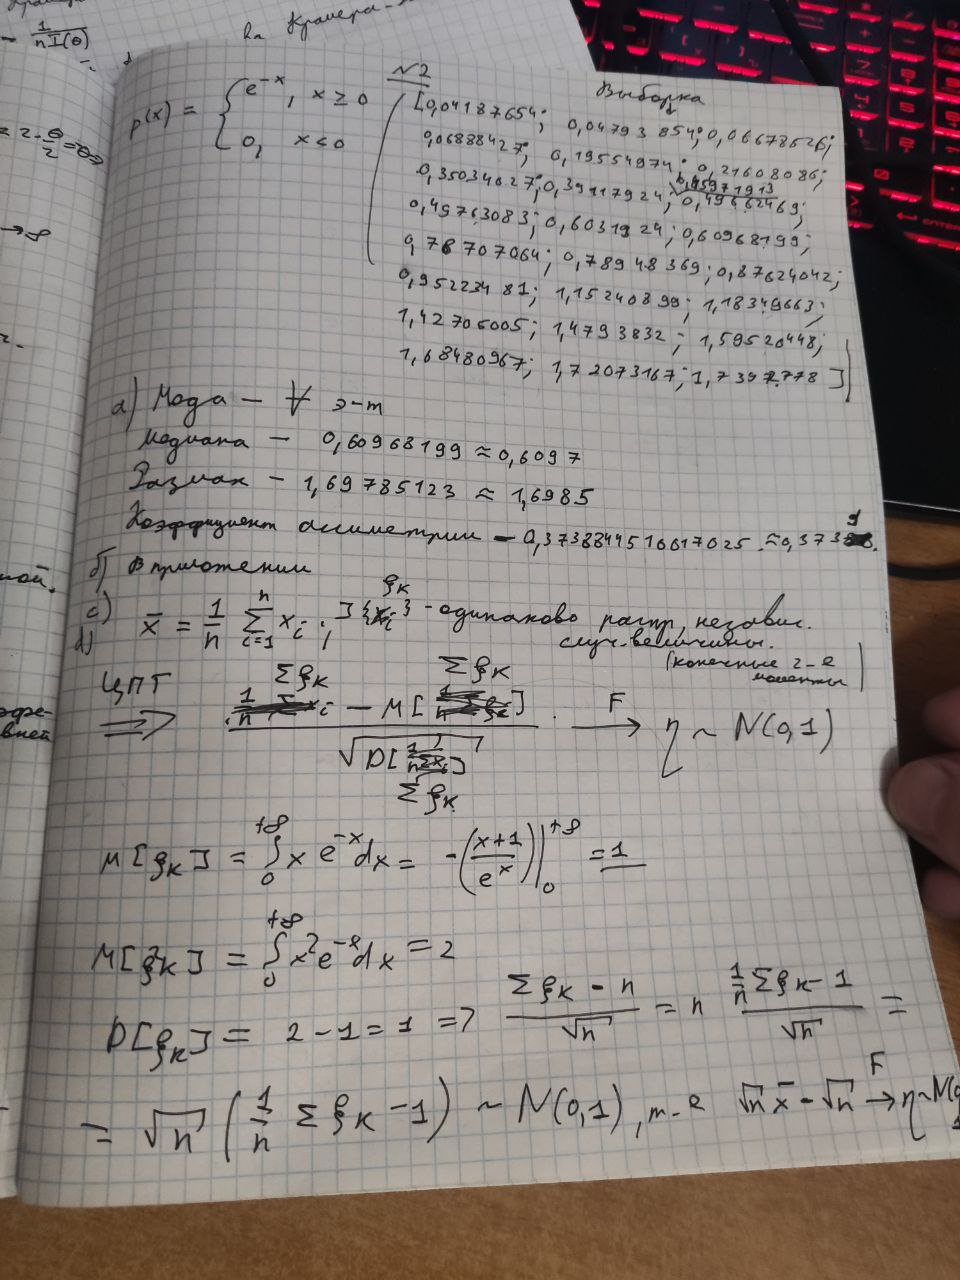 1/(nI(θ))
N2
p(x) = { e^{-x}, x ≥ 0
0, x < 0
Выборка
[0,04187654; 0,04793854; 0,06678526;
0,06888427; 0,19554974; 0,21608086;
0,35034627; 0,39117924; 0,45971913
0,49662469;
0,49763083; 0,6031924; 0,60968199;
0,78707064; 0,78948369; 0,87624042;
0,95223481; 1,15240899; 1,18349663;
1,42706005; 1,4793832; 1,59520448;
1,68480967; 1,72073167; 1,73972778]
а) Мода — ∀ э-т
Медиана — 0,60968199 ≈ 0,6097
Размах — 1,69785123 ≈ 1,6985
Коэффициент ассиметрии — 0,3738844516617025 ≈ 0,3739.
б) В приложении
c) d) x̄ = 1/n Σ_{i=1}^{n} x_i ; ] {ξ_k} - одинаково распр, независ.
случ. величины.
(конечные 2-е
моменты)
ЦПТ
⟹ (Σξ_k − M[Σξ_k]) / √D[Σξ_k] →^F η ~ N(0,1)
M[ξ_k] = ∫_0^{+∞} x e^{-x} dx = -((x+1)/e^x)|_0^{+∞} = 1
M[ξ²_k] = ∫_0^{+∞} x² e^{-x} dx = 2
D[ξ_k] = 2 − 1 = 1 => (Σξ_k − n)/√n = n (1/n Σξ_k − 1)/√n =
= √n (1/n Σξ_k − 1) ~ N(0,1), т-е √n x̄ − √n →^F η ~ N(0,1